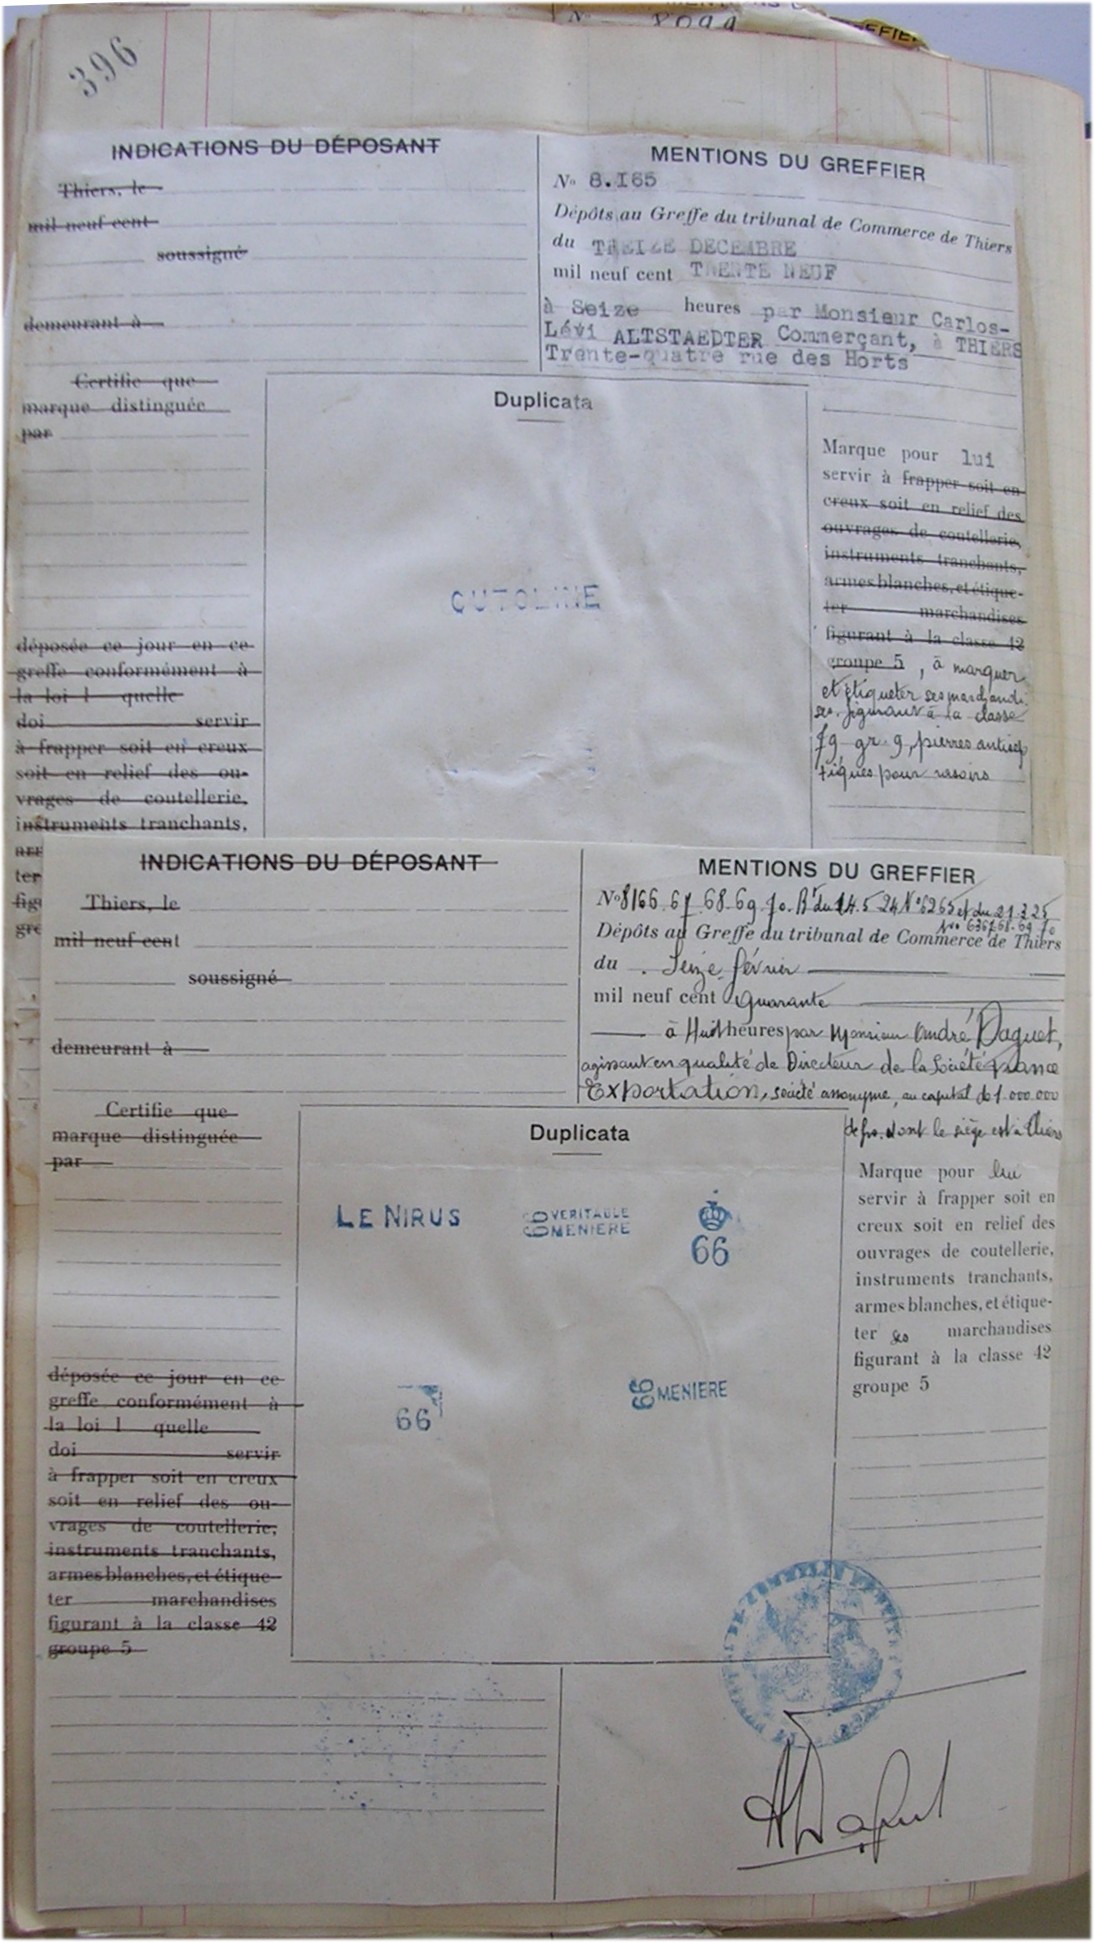 Nº 8099
396
INDICATIONS DU DÉPOSANT
Thiers, le
mil neuf cent
soussigné
demeurant à
MENTIONS DU GREFFIER
Nº 8.I65
Dépôts au Greffe du tribunal de Commerce de Thiers
du TREIZE DECEMBRE
mil neuf cent TRENTE NEUF
à Seize heures par Monsieur Carlos-
Lévi ALTSTAEDTER Commerçant, à THIERS
Trente-quatre rue des Horts
Certifie que
marque distinguée
par
déposée ce jour en ce
greffe conformément à
la loi l quelle
doi servir
à frapper soit en creux
soit en relief des ou-
vrages de coutellerie,
instruments tranchants,
arm
ter
figu
gro
Duplicata
CUTOLINE
Marque pour lui
servir à frapper soit en
creux soit en relief des
ouvrages de coutellerie,
instruments tranchants,
armes blanches, et étique-
ter marchandises
figurant à la classe 42
groupe 5, à marquer
et étiqueter ses marchandi
ses figurant à la classe
79 gr. 9, pierres antisep
tiques pour rasoirs
INDICATIONS DU DÉPOSANT
Thiers, le
mil neuf cent
soussigné
demeurant à
MENTIONS DU GREFFIER
Nº 8166.67.68.69.70. Rt du 14.5.24 Nº 6265 et du 21.3.25
Nos 6367.68.69.70
Dépôts au Greffe du tribunal de Commerce de Thiers
du Seize février
mil neuf cent quarante
à Huit heures par Monsieur André Daguet,
agissant en qualité de Directeur de la Société France
Exportation, société anonyme, au capital de 1.000.000
de frs. dont le siège est à Thiers
Certifie que
marque distinguée
par
déposée ce jour en ce
greffe conformément à
la loi l quelle
doi servir
à frapper soit en creux
soit en relief des ou-
vrages de coutellerie,
instruments tranchants,
armes blanches, et étique-
ter marchandises
figurant à la classe 42
groupe 5
Duplicata
LE NIRUS
66 VERITABLE
MENIERE
66
66
66 MENIERE
Marque pour lui
servir à frapper soit en
creux soit en relief des
ouvrages de coutellerie,
instruments tranchants,
armes blanches, et étique-
ter ses marchandises
figurant à la classe 42
groupe 5
ADaguet